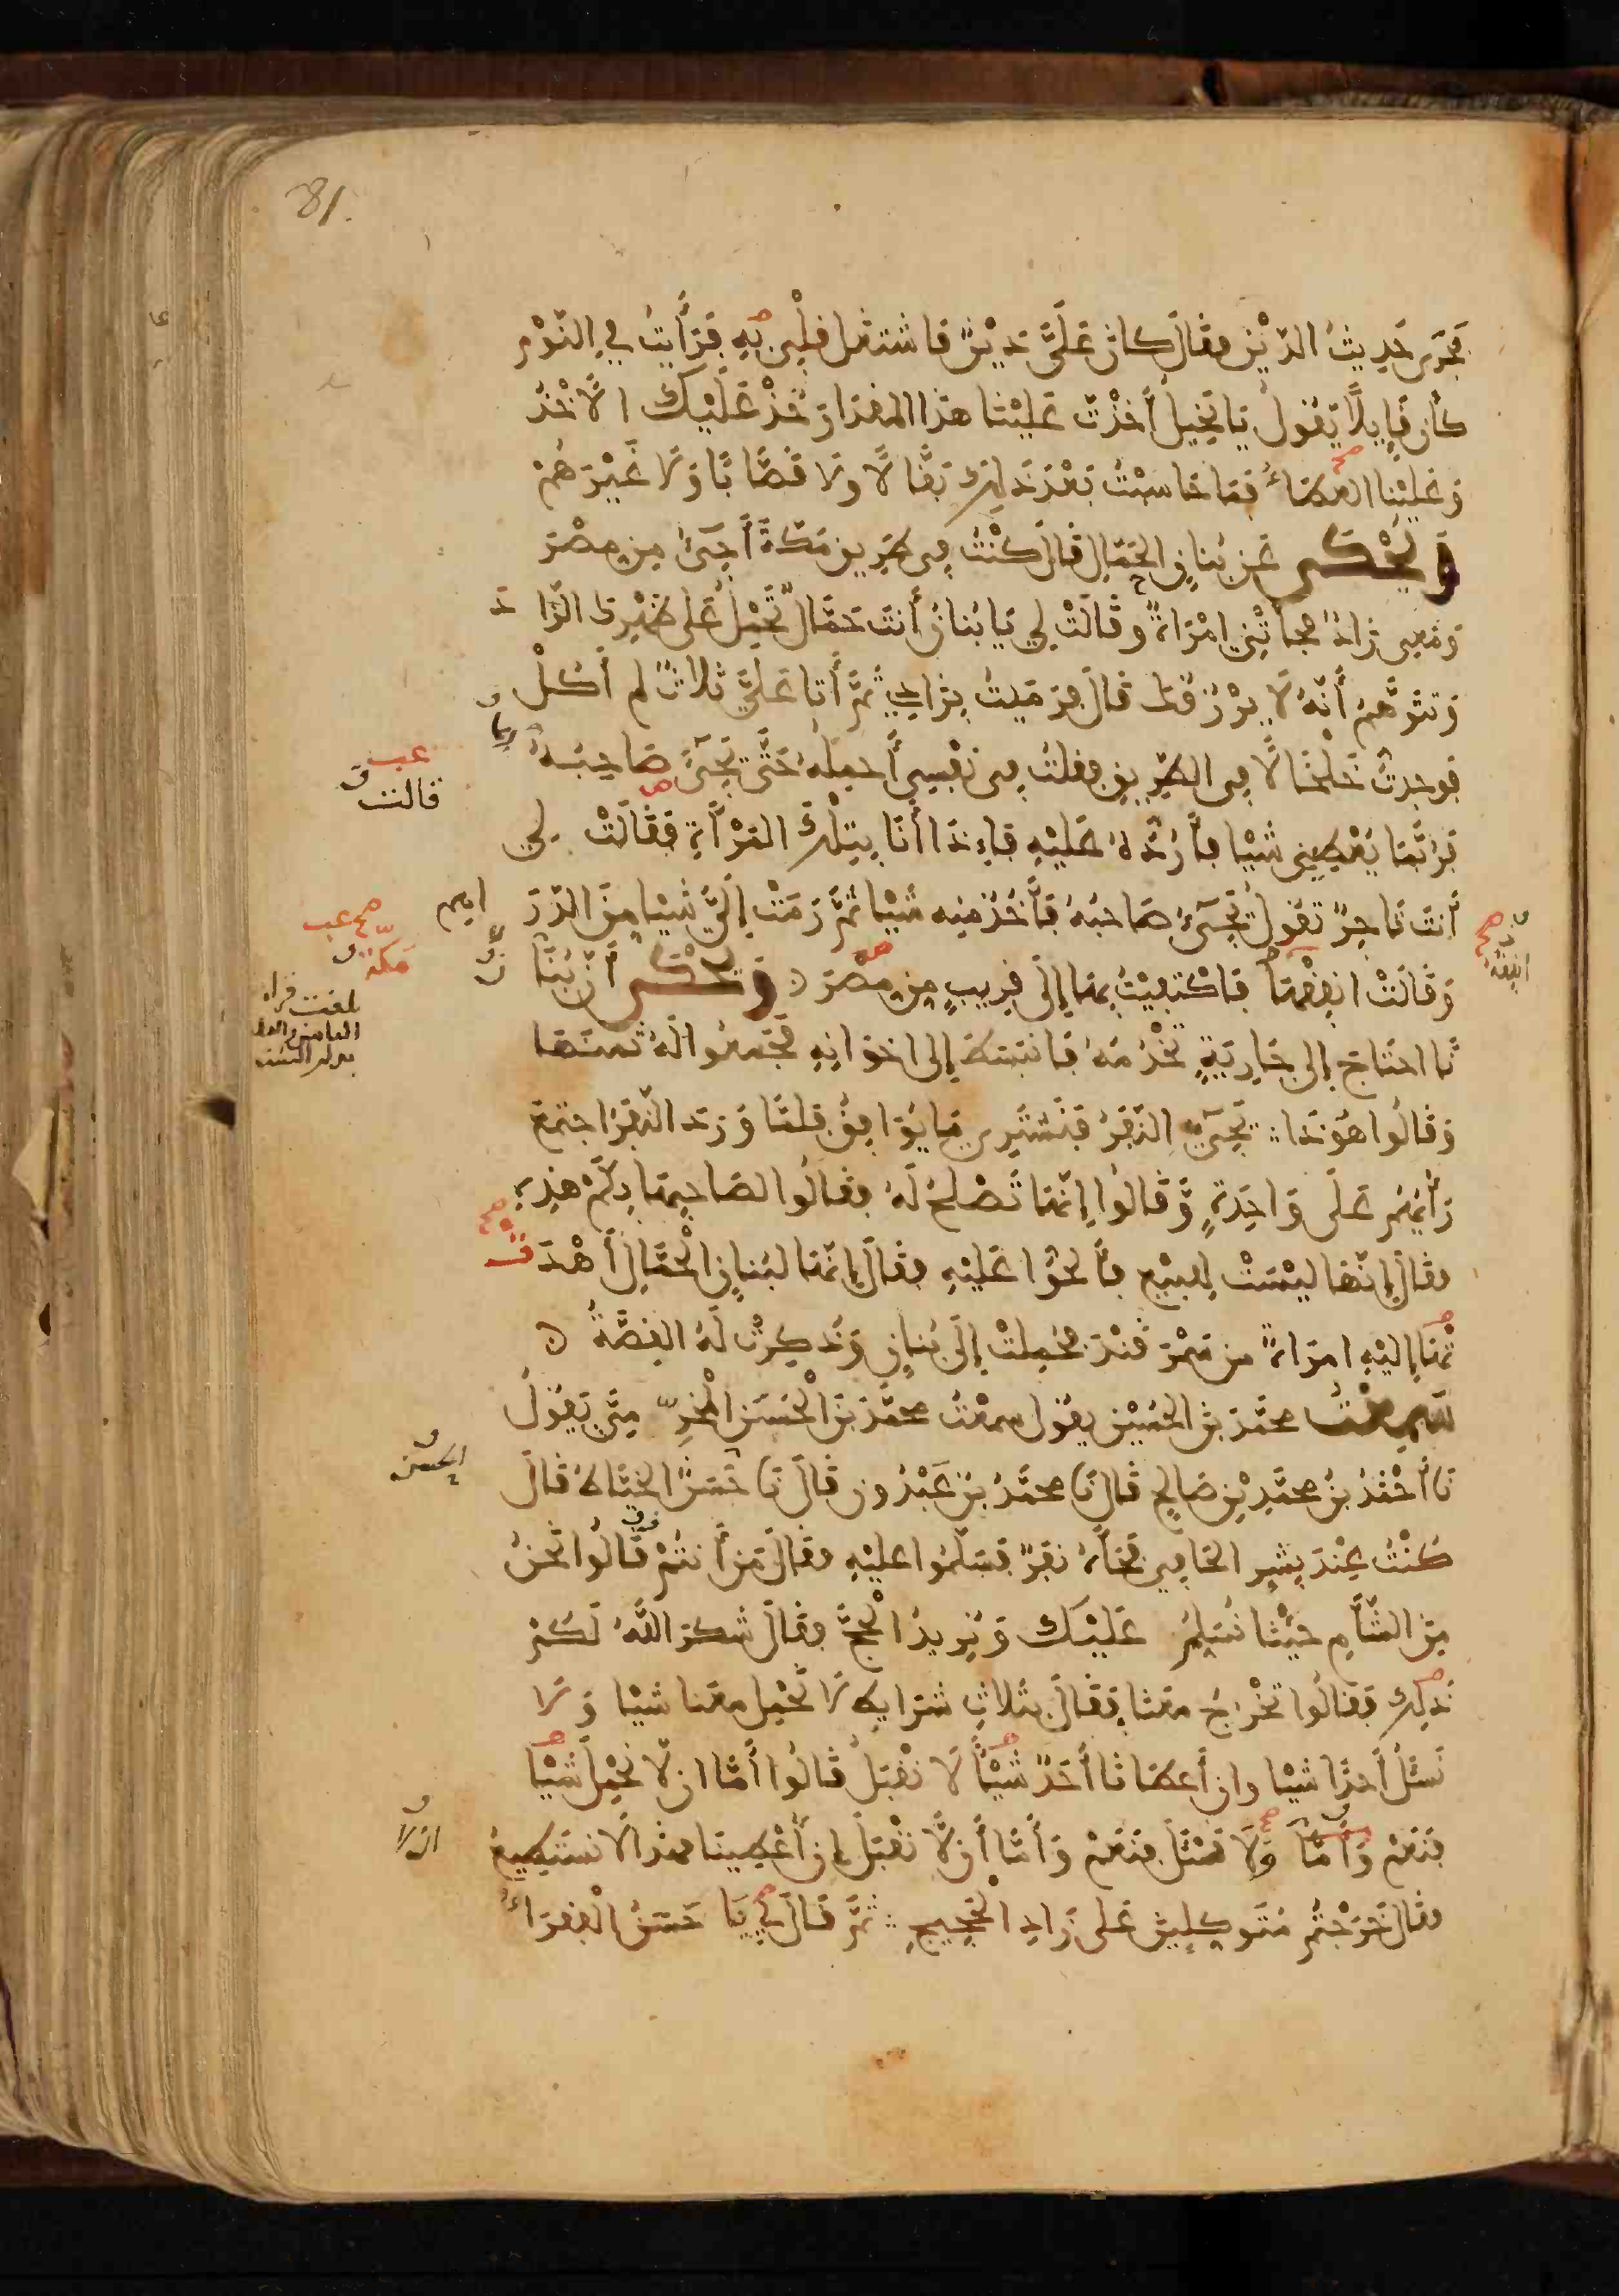 81.
فَجَرَى حَدِيثُ الدَّيْنِ فقَالَ كَانَ عَلَيَّ دَيْنٌ فَاشْتَغَلَ قَلْبِي بِهِ فَرَأَيْتُ فِي النَّوْمِ
كَأَنَّ قَايِلًا يَقُولُ يَا بَخِيلُ أَخَذْتَ عَلَيْنَا هَذَا المقدَارَ خُذْ عَلَيْكَ الأَخْذُ
وَعَلَيْنَا العَطَاءُ فمَا حَاسَبْتُ بَعْدَ ذَلِكَ بَقَّالًا وَلَا قَصَّابًا وَلَا غَيْرَهُمْ
وَيُحْكَى عَن بُنَانٍ الحَمَّالِ قَالَ كُنْتُ فِي طَرِيقِ مَكَّةَ أَجِيءُ مِن مِصْرَ
وَمَعِي زَادٌ فجَاءَتْنِي امْرَأَةٌ وَقَالَتْ لِي يَا بُنَانُ أَنْتَ حَمَّالٌ تَحْمِلُ عَلَى ظَهْرِكَ الزَّادَ
وَتَتَوَهَّمُ أَنَّهُ لَا يَرْزُقُكَ قَالَ فَرَمَيْتُ بِزَادِي ثُمَّ أَتَا عَلَيَّ ثَلَاثٌ لَم أَكُلْ
فوَجَدتُ خَلْخَالًا فِي الطَّرِيقِ فقُلتُ فِي نَفْسِي أَحمِلُهُ حَتَّى يَجِيءَ صَاحِبُهُ
عب
قالت
فَرُبَّمَا يُعْطِينِي شَيْئا فأَرُدُّهُ عَلَيْهِ فَإِذَا أَنَا بِتِلْكَ المَرْأَةِ فَقَالَتْ لِي
أَنْتَ تَاجِرٌ تَقُولُ يَجِيءُ صَاحِبُهُ فَآخُذُ مِنه شَيْئا ثُمَّ رَمَتْ إِلَيَّ شَيْئا مِنَ الدَّرَ اهِم
صح عب
وَقَالَتْ انفِقْهَا فَاكْتَفَيْتُ بِهَا إِلَى قَرِيبٍ مِن مِصْرَ ۞ وَيُحْكَى أَنَّ بُنَا نٌ
مكة
انفقه
نًا احتَاجَ إِلَى جَارِيَةٍ تَخْدُمُهُ فَانبَسَطَ إِلَى اخوَانِهِ فَجَمَعُوا لَهُ ثَمَنَهَا
بلغت قراه
وَقَالُوا هُوَ ذَا يَجِيءُ النَّفَرُ فَنَشْتَرِي مَا يُوَافِقُ فلمَّا وَرَدَ النَّفَرُ اجتَمَعَ
رَأْيُهُم عَلَى وَاحِدَةٍ وَقَالُوا إِنَّهَا تَصْلُحُ لَهُ فقَالُوا لصَاحِبِهَا بِكَمْ هَذِهِ
فقَالَ إِنَّهَا لَيْسَتْ لِلبَيْعِ فأَلَحُّوا عَلَيْهِ فقَالَ إِنَّهَا لبُنَانٍ الْحَمَّالِ أَهْدَتْ
ثْهَا إِلَيْهِ امرَأَةٌ مِن سَمَرْقَنْدَ فحُمِلَتْ إِلَى بُنَانٍ وَذُكِرَتْ لَهُ القِصَّةُ ۞
سَمِعْتُ محمَّدَ بنَ الحُسَيْنِ يقول سمعتُ محمَّدَ بنَ الْحَسَنِ الْمُخَرِّ مِيَّ يَقُولُ
نَا أَحْمَدُ بنُ محمَّدِ بْنِ صَالِحٍ قَالَ نَا محمَّدُ بْنُ عَبْدُونٍ قَالَ نَا حَسَنٌ الخَيَّاطُ قَالَ
كُنْتُ عِنْدَ بِشْرٍ الحَافِي فَجَاءَهُ نَفَرٌ فَسَلَّمُوا عَلَيْهِ فقَالَ مَنْ أَنْتُمْ قَالُوا نَحْنُ
مِنَ الشَّامِ جِئْنَا نُسَلِّمُ عَلَيْكَ وَنُرِيدُ الْحَجَّ فقَالَ شَكَرَ اللَّهُ لَكُمْ
ذَلِكَ فَقَالُوا تَخْرُجُ مَعَنَا فَقَالَ بثَلَاثِ شَرَايِطَ لَا نَحْمِلُ مَعَنا شَيْئا وَلَا
نَسْئَلُ أَحدًا شيْئا وإن أَعطَانَا أَحَدٌ شَيْئًا لَا نَقْبَلُ قَالُوا أَمَّا ان لَّا نَحْمِلَ شَيْئًا
فَنَعَمْ وَأَمَّا وَلَا نَسْئَلَ فَنَعَمْ وَأَمَّا أَن لَّا نَقْبَلَ إِن أُعْطِينَا فهَذَا لَا نَستَطِيعُ
ان لا
فقَالَ خَرَجْتُم مُتَوَكِّلِينَ عَلَى زَادِ الْحَجِيجِ ثُمَّ قَالَ لِي يَا حَسَنُ الْفُقَرَاءُ